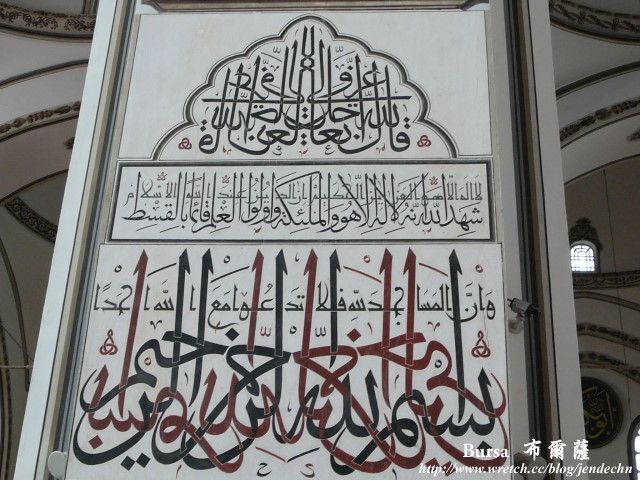 لا اله الا هو العزيز الحكيم ان الدين عند الله الاسلام
شهد الله انه لا اله الا هو والملئكة واولوا العلم قائما بالقسط
وان المساجد لله فلا تدعوا مع الله احدا
بسم الله الرحمن الرحيم
Bursa 布爾薩
http://www.wretch.cc/blog/jendechn